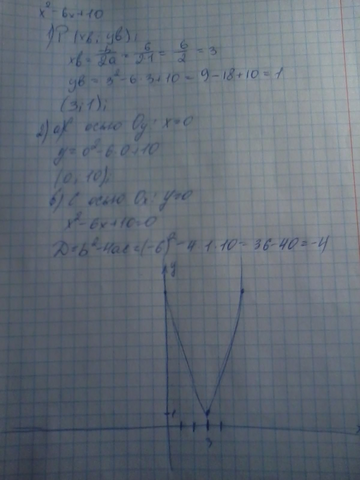 x²-6x+10
1) P (xв; yв);
xв = б/2а = 6/2·1 = 6/2 = 3
yв = 3²-6·3+10 = 9-18+10 = 1
(3;1);
2) а) С осью Oy: x=0
y=0²-6·0+10
(0; 10);
б) С осью Ox: y=0
x²-6x+10=0
D=b²-4ac=(-6)²-4·1·10=36-40=-4
y
1
3